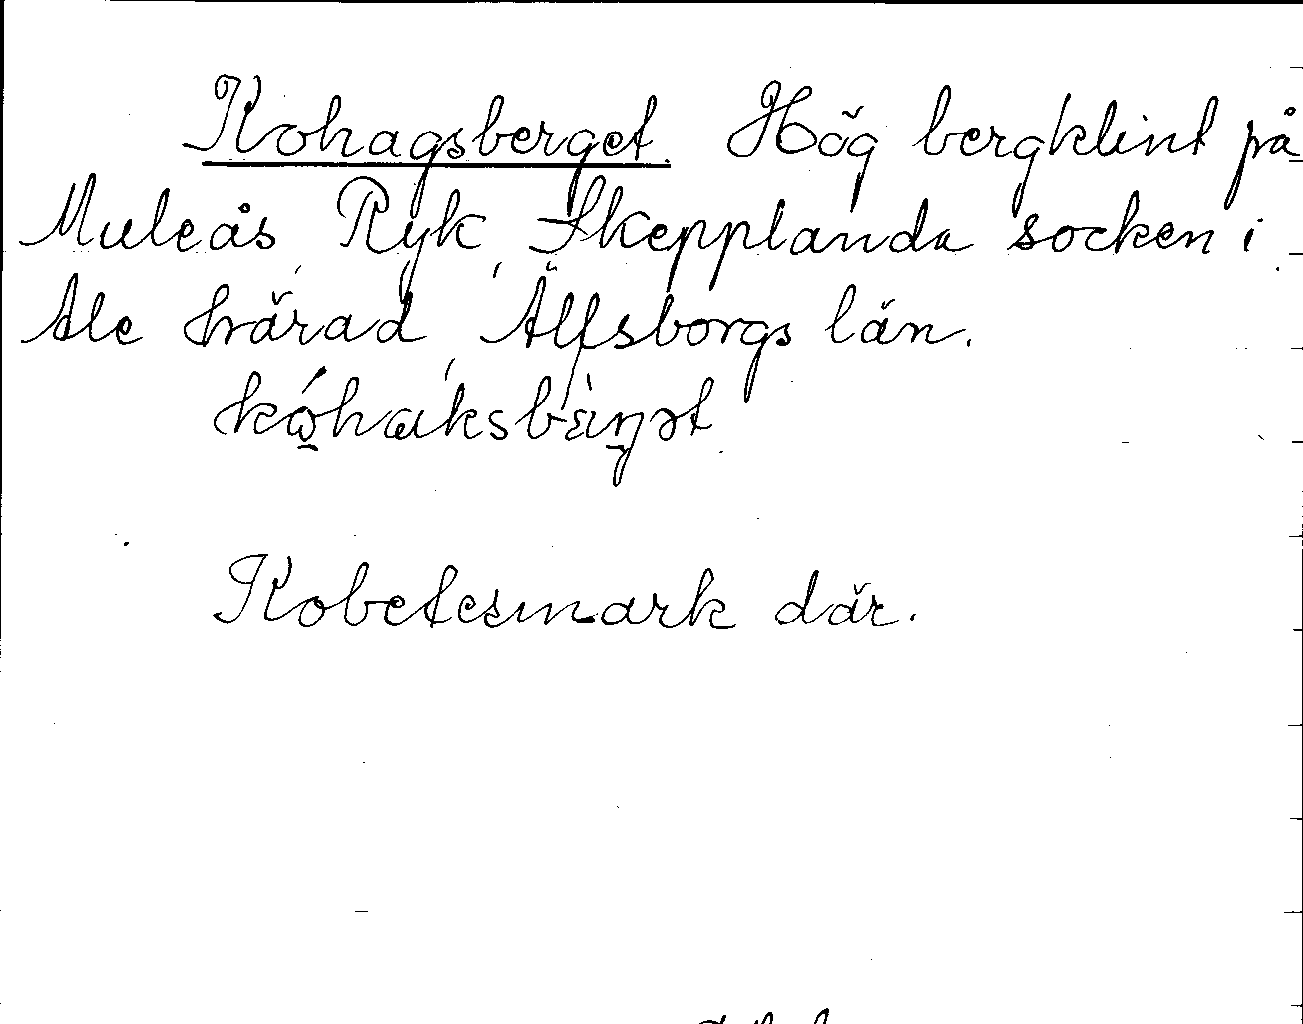 Kohagsberget. Hög bergklint på
Muleås, Ryk, Skepplanda socken i
Ale härad, Älfsborgs län.
Kobetesmark där.